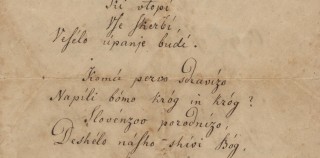 Ki vtopi
Vse skerbi,
Vesélo vúpanje budí.
Komú pervo sdravízo
Napili bómo króg in króg?
Slovénzov porodnízo,
Deshélo násho – shívi Bóg,